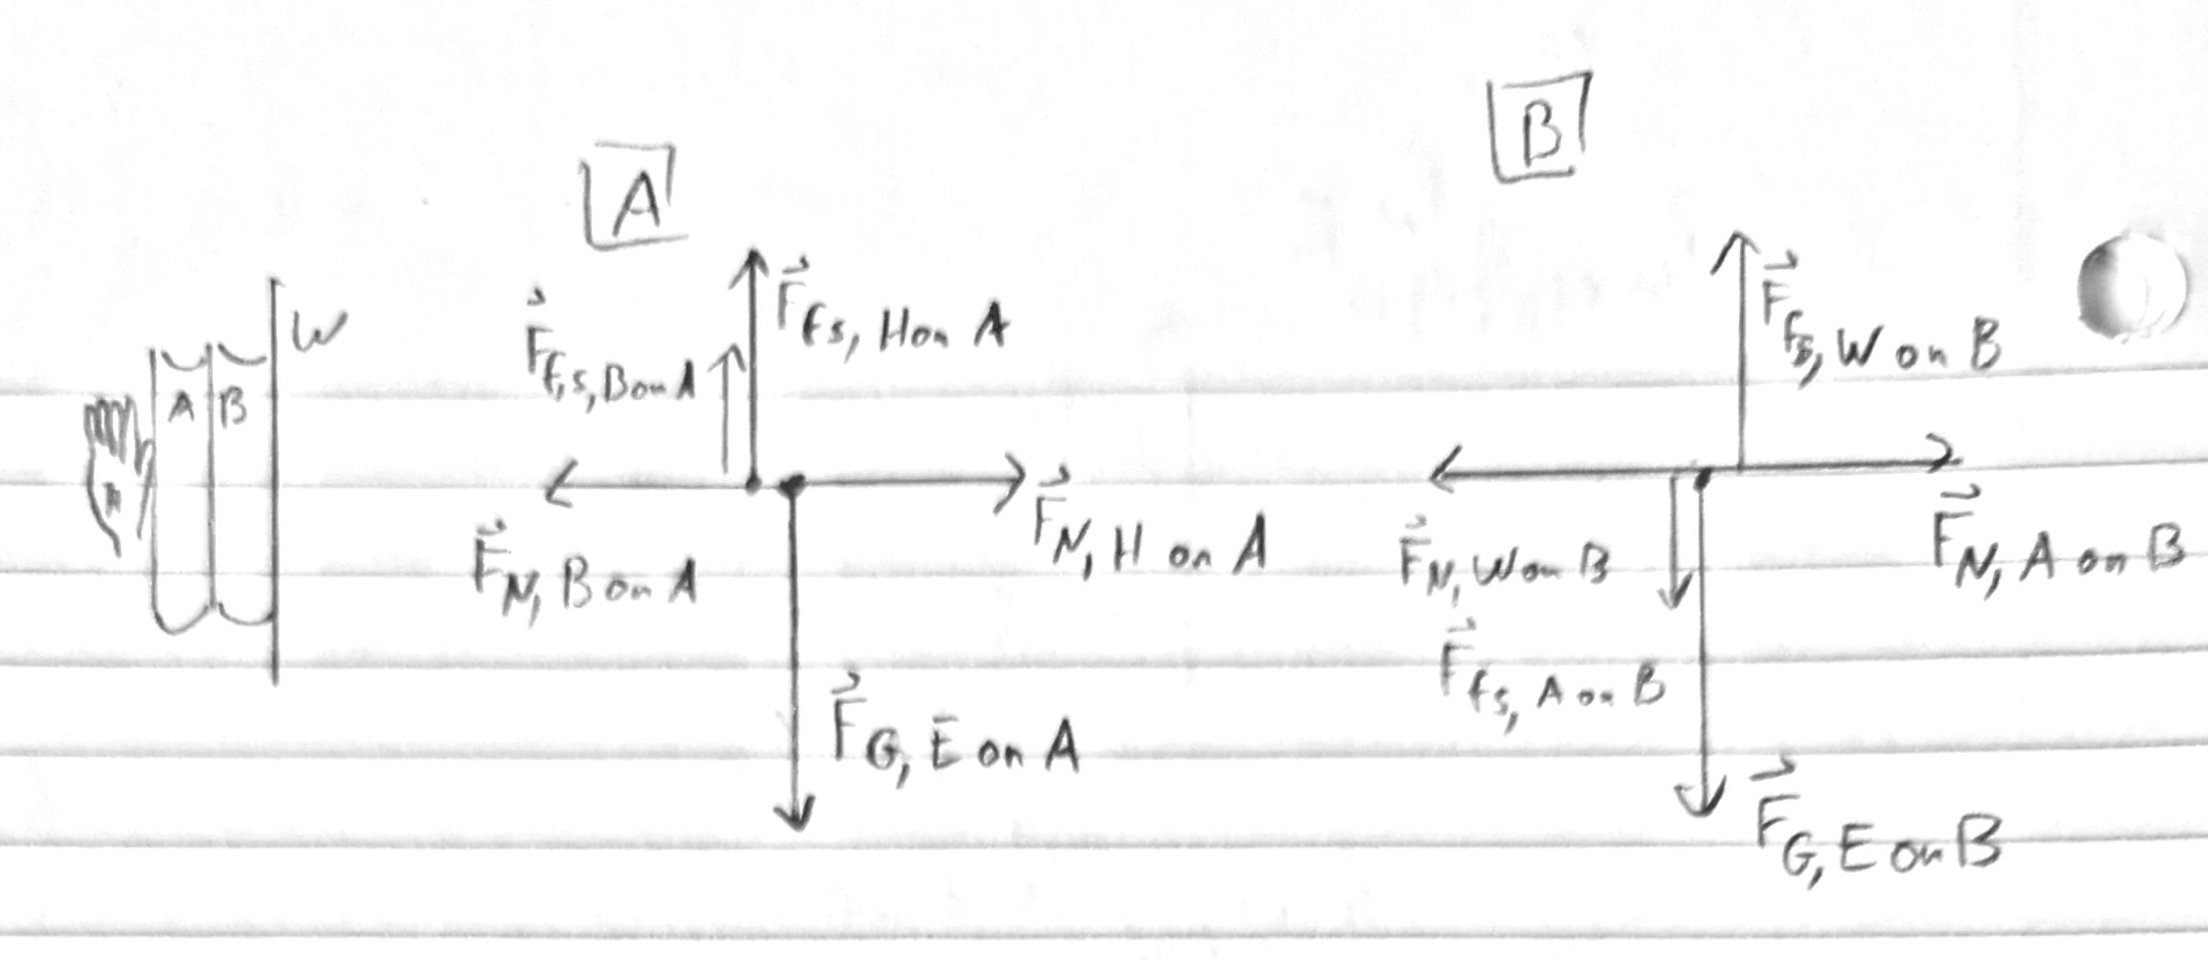 W
A B
H
A
F⃗ fs, H on A
F⃗ f,s, B on A
F⃗ N, B on A
F⃗ N, H on A
F⃗ G, E on A
B
F⃗ fs, W on B
F⃗ N, W on B
F⃗ N, A on B
F⃗ fs, A on B
F⃗ G, E on B